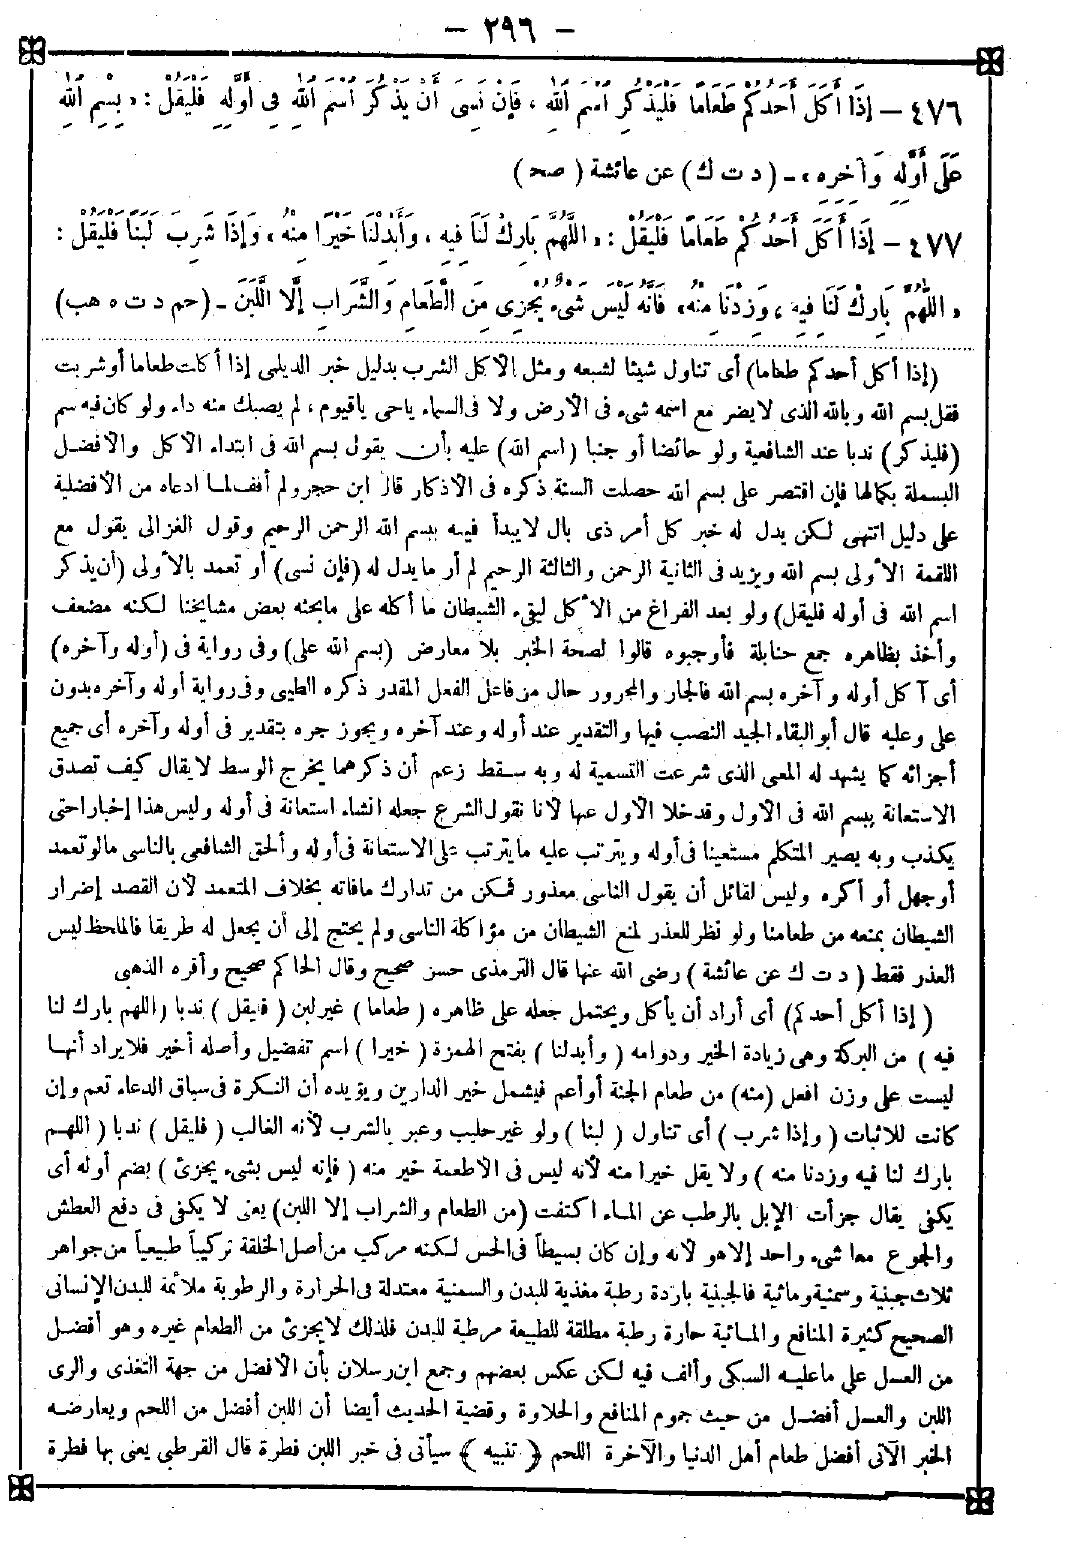 - ٢٩٦ -
٤٧٦ - إِذَا أَكَلَ أَحَدُكُمْ طَعَامًا فَلْيَذْكُرِ اسْمَ اللهِ، فَإِنْ نَسِىَ أَنْ يَذْكُرَ اسْمَ اللهِ فِى أَوَّلِهِ فَلْيَقُلْ: «بِسْمِ اللهِ
عَلَى أَوَّلِهِ وَآخِرِهِ» - (د ت ك) عن عائشة (صحـ)
٤٧٧ - إِذَا أَكَلَ أَحَدُكُمْ طَعَامًا فَلْيَقُلْ: «اللَّهُمَّ بَارِكْ لَنَا فِيهِ، وَأَبْدِلْنَا خَيْرًا مِنْهُ، وَإِذَا شَرِبَ لَبَنًا فَلْيَقُلْ:
«اللَّهُمَّ بَارِكْ لَنَا فِيهِ، وَزِدْنَا مِنْهُ، فَانَّهُ لَيْسَ شَىْءٌ يُجْزِى مِنَ الطَّعَامِ وَالشَّرَابِ إِلَّا اللَّبَنَ - (حم د ت ه هب)
(إذا أكل أحدكم طعاما) أى تناول شيئا لشبعه ومثل الأكل الشرب بدليل خبر الديلمى إذا أكلت طعاما أو شربت
فقل بسم الله وبالله الذى لا يضر مع اسمه شىء فى الأرض ولا فى السماء ياحى ياقيوم، لم يصبك منه داء ولو كان فيه سم
(فليذكر) ندبا عند الشافعية ولو حائضا أو جنبا (اسم الله) عليه بأن يقول بسم الله فى ابتداء الأكل والأفضل
البسملة بكمالها فإن اقتصر على بسم الله حصلت السنة ذكره فى الأذكار قال ابن حجر ولم أقف لما ادعاه من الأفضلية
على دليل انتهى لكن يدل له خبر كل أمر ذى بال لا يبدأ فيه ببسم الله الرحمن الرحيم وقول الغزالى يقول مع
اللقمة الأولى بسم الله ويزيد فى الثانية الرحمن والثالثة الرحيم لم أر ما يدل له (فإن نسى) أو تعمد بالأولى (أن يذكر
اسم الله فى أوله فليقل) ولو بعد الفراغ من الأكل ليقىء الشيطان ما أكله على مابحثه بعض مشايخنا لكنه مضعف
وأخذ بظاهره جمع حنابلة فأوجبوه قالوا لصحة الخبر بلا معارض (بسم الله على) وفى رواية فى (أوله وآخره)
أى آكل أوله وآخره بسم الله فالجار والمجرور حال من فاعل الفعل المقدر ذكره الطيبى وفى رواية أوله وآخره بدون
على وعليه قال أبو البقاء الجيد النصب فيها والتقدير عند أوله وعند آخره ويجوز جره بتقدير فى أوله وآخره أى جميع
أجزائه كما يشهد له المعنى الذى شرعت التسمية له وبه سقط زعم أن ذكرهما يخرج الوسط لا يقال كيف تصدق
الاستعانة ببسم الله فى الأول وقد خلا الأول عنها لأنا نقول الشرع جعله انشاء استعانة فى أوله وليس هذا إخبارا حتى
يكذب وبه يصير المتكلم مستعينا فى أوله ويترتب عليه ما يترتب على الاستعانة فى أوله وألحق الشافعى بالناسى مالو تعمد
أو جهل أو أكره وليس لقائل أن يقول الناسى معذور فمكن من تدارك مافاته بخلاف المتعمد لأن القصد إضرار
الشيطان بمنعه من طعامنا ولو نظر للعذر لمنع الشيطان من مؤاكلة الناسى ولم يحتج إلى أن يجعل له طريقا فالملحظ ليس
العذر فقط (د ت ك عن عائشة) رضى الله عنها قال الترمذى حسن صحيح وقال الحاكم صحيح وأقره الذهبى
(إذا أكل أحدكم) أى أراد أن يأكل ويحتمل جعله على ظاهره (طعاما) غير لبن (فليقل) ندبا (اللهم بارك لنا
فيه) من البركة وهى زيادة الخير ودوامه (وأبدلنا) بفتح الهمزة (خيرا) اسم تفضيل وأصله أخير فلا يراد أنها
ليست على وزن افعل (منه) من طعام الجنة أو أعم فيشمل خير الدارين ويؤيده أن النكرة فى سياق الدعاء تعم وإن
كانت للاثبات (وإذا شرب) أى تناول (لبنا) ولو غير حليب وعبر بالشرب لأنه الغالب (فليقل) ندبا (اللهم
بارك لنا فيه وزدنا منه) ولا يقل خيرا منه لأنه ليس فى الأطعمة خير منه (فإنه ليس بشىء يجزئ) بضم أوله أى
يكفى يقال جزأت الإبل بالرطب عن الماء اكتفت (من الطعام والشراب إلا اللبن) يعنى لا يكفى فى دفع العطش
والجوع معا شىء واحد إلا هو لأنه وإن كان بسيطاً فى الحس لكنه مركب من أصل الخلقة تركيباً طبيعياً من جواهر
ثلاث جبنية وسمنية ومائية فالجبنية باردة رطبة مغذية للبدن والسمنية معتدلة فى الحرارة والرطوبة ملائمة للبدن الإنسانى
الصحيح كثيرة المنافع والمائية حارة رطبة مطلقة للطبيعة مرطبة للبدن فلذلك لا يجزئ من الطعام غيره وهو أفضل
من العسل على ما عليه السبكى وألف فيه لكن عكس بعضهم وجمع ابن رسلان بأن الأفضل من جهة التغذى والرى
اللبن والعسل أفضل من حيث جموم المنافع والحلاوة وقضية الحديث أيضا أن اللبن أفضل من اللحم ويعارضه
الخبر الآتى أفضل طعام أهل الدنيا والآخرة اللحم (تنبيه) سيأتى فى خبر اللبن فطرة قال القرطبى يعنى بها فطرة